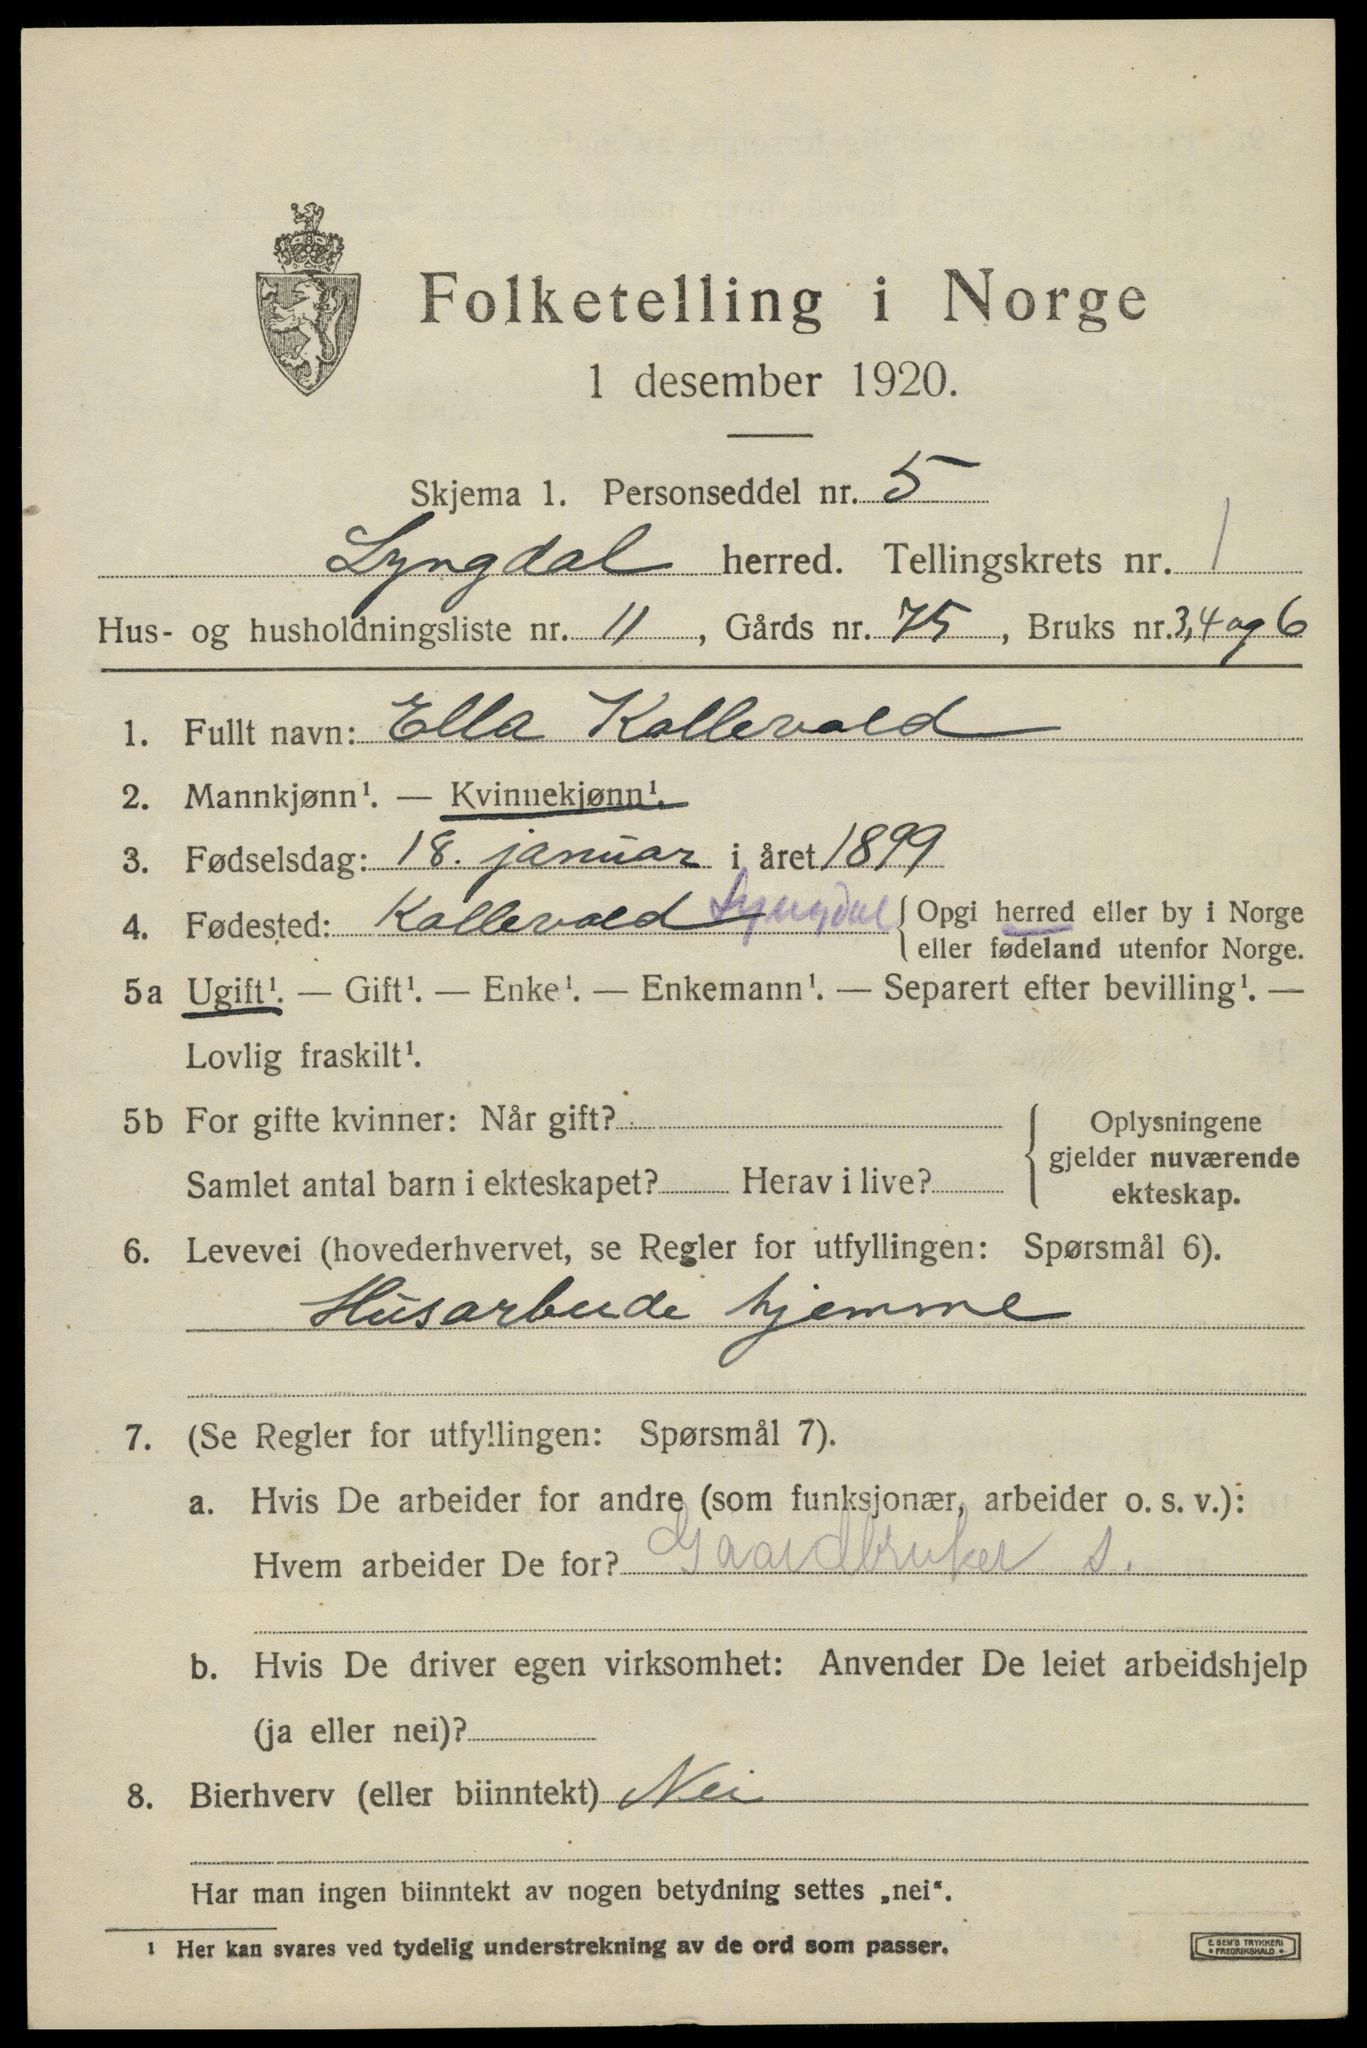 Folketelling i Norge
1 desember 1920.
Skjema 1. Personseddel nr. 5
Lyngdal herred. Tellingskrets nr. 1
Hus- og husholdningsliste nr. 11, Gårds nr. 75, Bruks nr. 3,4 og 6
1. Fullt navn: Ella Kallevold
2. Mannkjønn¹. — Kvinnekjønn¹.
3. Fødselsdag: 18. januar i året 1899
4. Fødested: Kallevold Lyngdal { Opgi herred eller by i Norge
eller fødeland utenfor Norge.
5a Ugift¹. — Gift¹. — Enke¹. — Enkemann¹. — Separert efter bevilling¹. —
Lovlig fraskilt¹.
5b For gifte kvinner: Når gift?
Samlet antal barn i ekteskapet? Herav i live?
Oplysningene
gjelder nuværende
ekteskap.
6. Levevei (hovederhvervet, se Regler for utfyllingen: Spørsmål 6).
Husarbeide hjemme
7. (Se Regler for utfyllingen: Spørsmål 7).
a. Hvis De arbeider for andre (som funksjonær, arbeider o. s. v.):
Hvem arbeider De for? Gaardbruker s.
b. Hvis De driver egen virksomhet: Anvender De leiet arbeidshjelp
(ja eller nei)?
8. Bierhverv (eller biinntekt) Nei
Har man ingen biinntekt av nogen betydning settes „nei“.
¹ Her kan svares ved tydelig understrekning av de ord som passer.
E. SEM'S TRYKKERI
• FREDRIKSHALD •